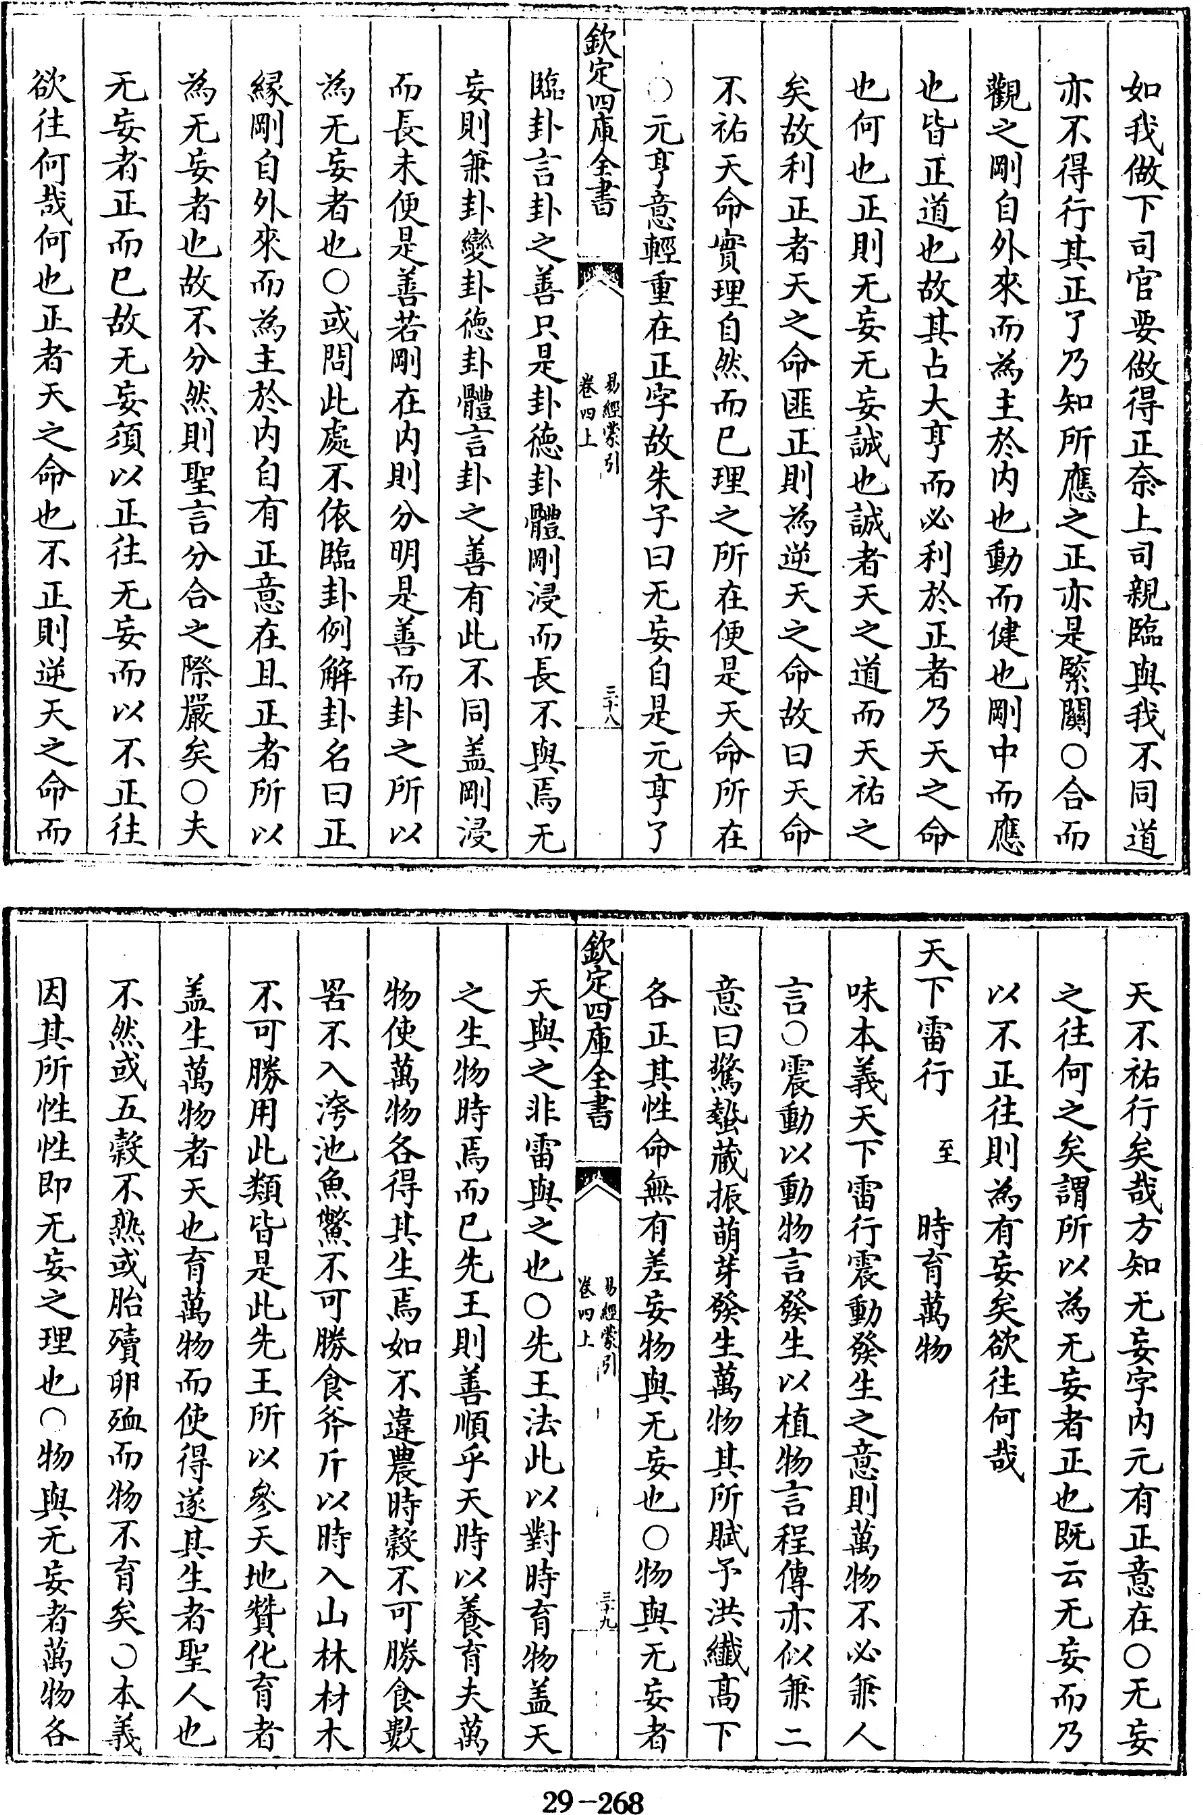 如我做下司官要做得正奈上司親臨與我不同道
亦不得行其正了乃知所應之正亦是緊關○合而
觀之剛自外來而為主於内也動而健也剛中而應
也皆正道也故其占大亨而必利於正者乃天之命
也何也正則无妄无妄誠也誠者天之道而天祐之
矣故利正者天之命匪正則為逆天之命故曰天命
不祐天命實理自然而已理之所在便是天命所在
○元亨意輕重在正字故朱子曰无妄自是元亨了
欽定四庫全書
易經蒙引
卷四上
三十八
臨卦言卦之善只是卦德卦體剛浸而長不與焉无
妄則兼卦變卦德卦體言卦之善有此不同盖剛浸
而長未便是善若剛在内則分明是善而卦之所以
為无妄者也○或問此處不依臨卦例解卦名曰正
縁剛自外來而為主於内自有正意在且正者所以
為无妄者也故不分然則聖言分合之際嚴矣○夫
无妄者正而已故无妄須以正往无妄而以不正往
欲往何哉何也正者天之命也不正則逆天之命而
天不祐行矣哉方知无妄字内元有正意在○无妄
之往何之矣謂所以為无妄者正也既云无妄而乃
以不正往則為有妄矣欲往何哉
天下雷行 至 時育萬物
味本義天下雷行震動發生之意則萬物不必兼人
言○震動以動物言發生以植物言程傳亦似兼二
意曰驚蟄藏振萌芽發生萬物其所賦予洪纎髙下
各正其性命無有差妄物與无妄也○物與无妄者
欽定四庫全書
易經蒙引
卷四上
三十九
天與之非雷與之也○先王法此以對時育物盖天
之生物時焉而已先王則善順乎天時以養育夫萬
物使萬物各得其生焉如不違農時穀不可勝食數
罟不入洿池魚鱉不可勝食斧斤以時入山林材木
不可勝用此類皆是此先王所以參天地贊化育者
盖生萬物者天也育萬物而使得遂其生者聖人也
不然或五穀不熟或胎殰卵殈而物不育矣○本義
因其所性性即无妄之理也○物與无妄者萬物各
29-268